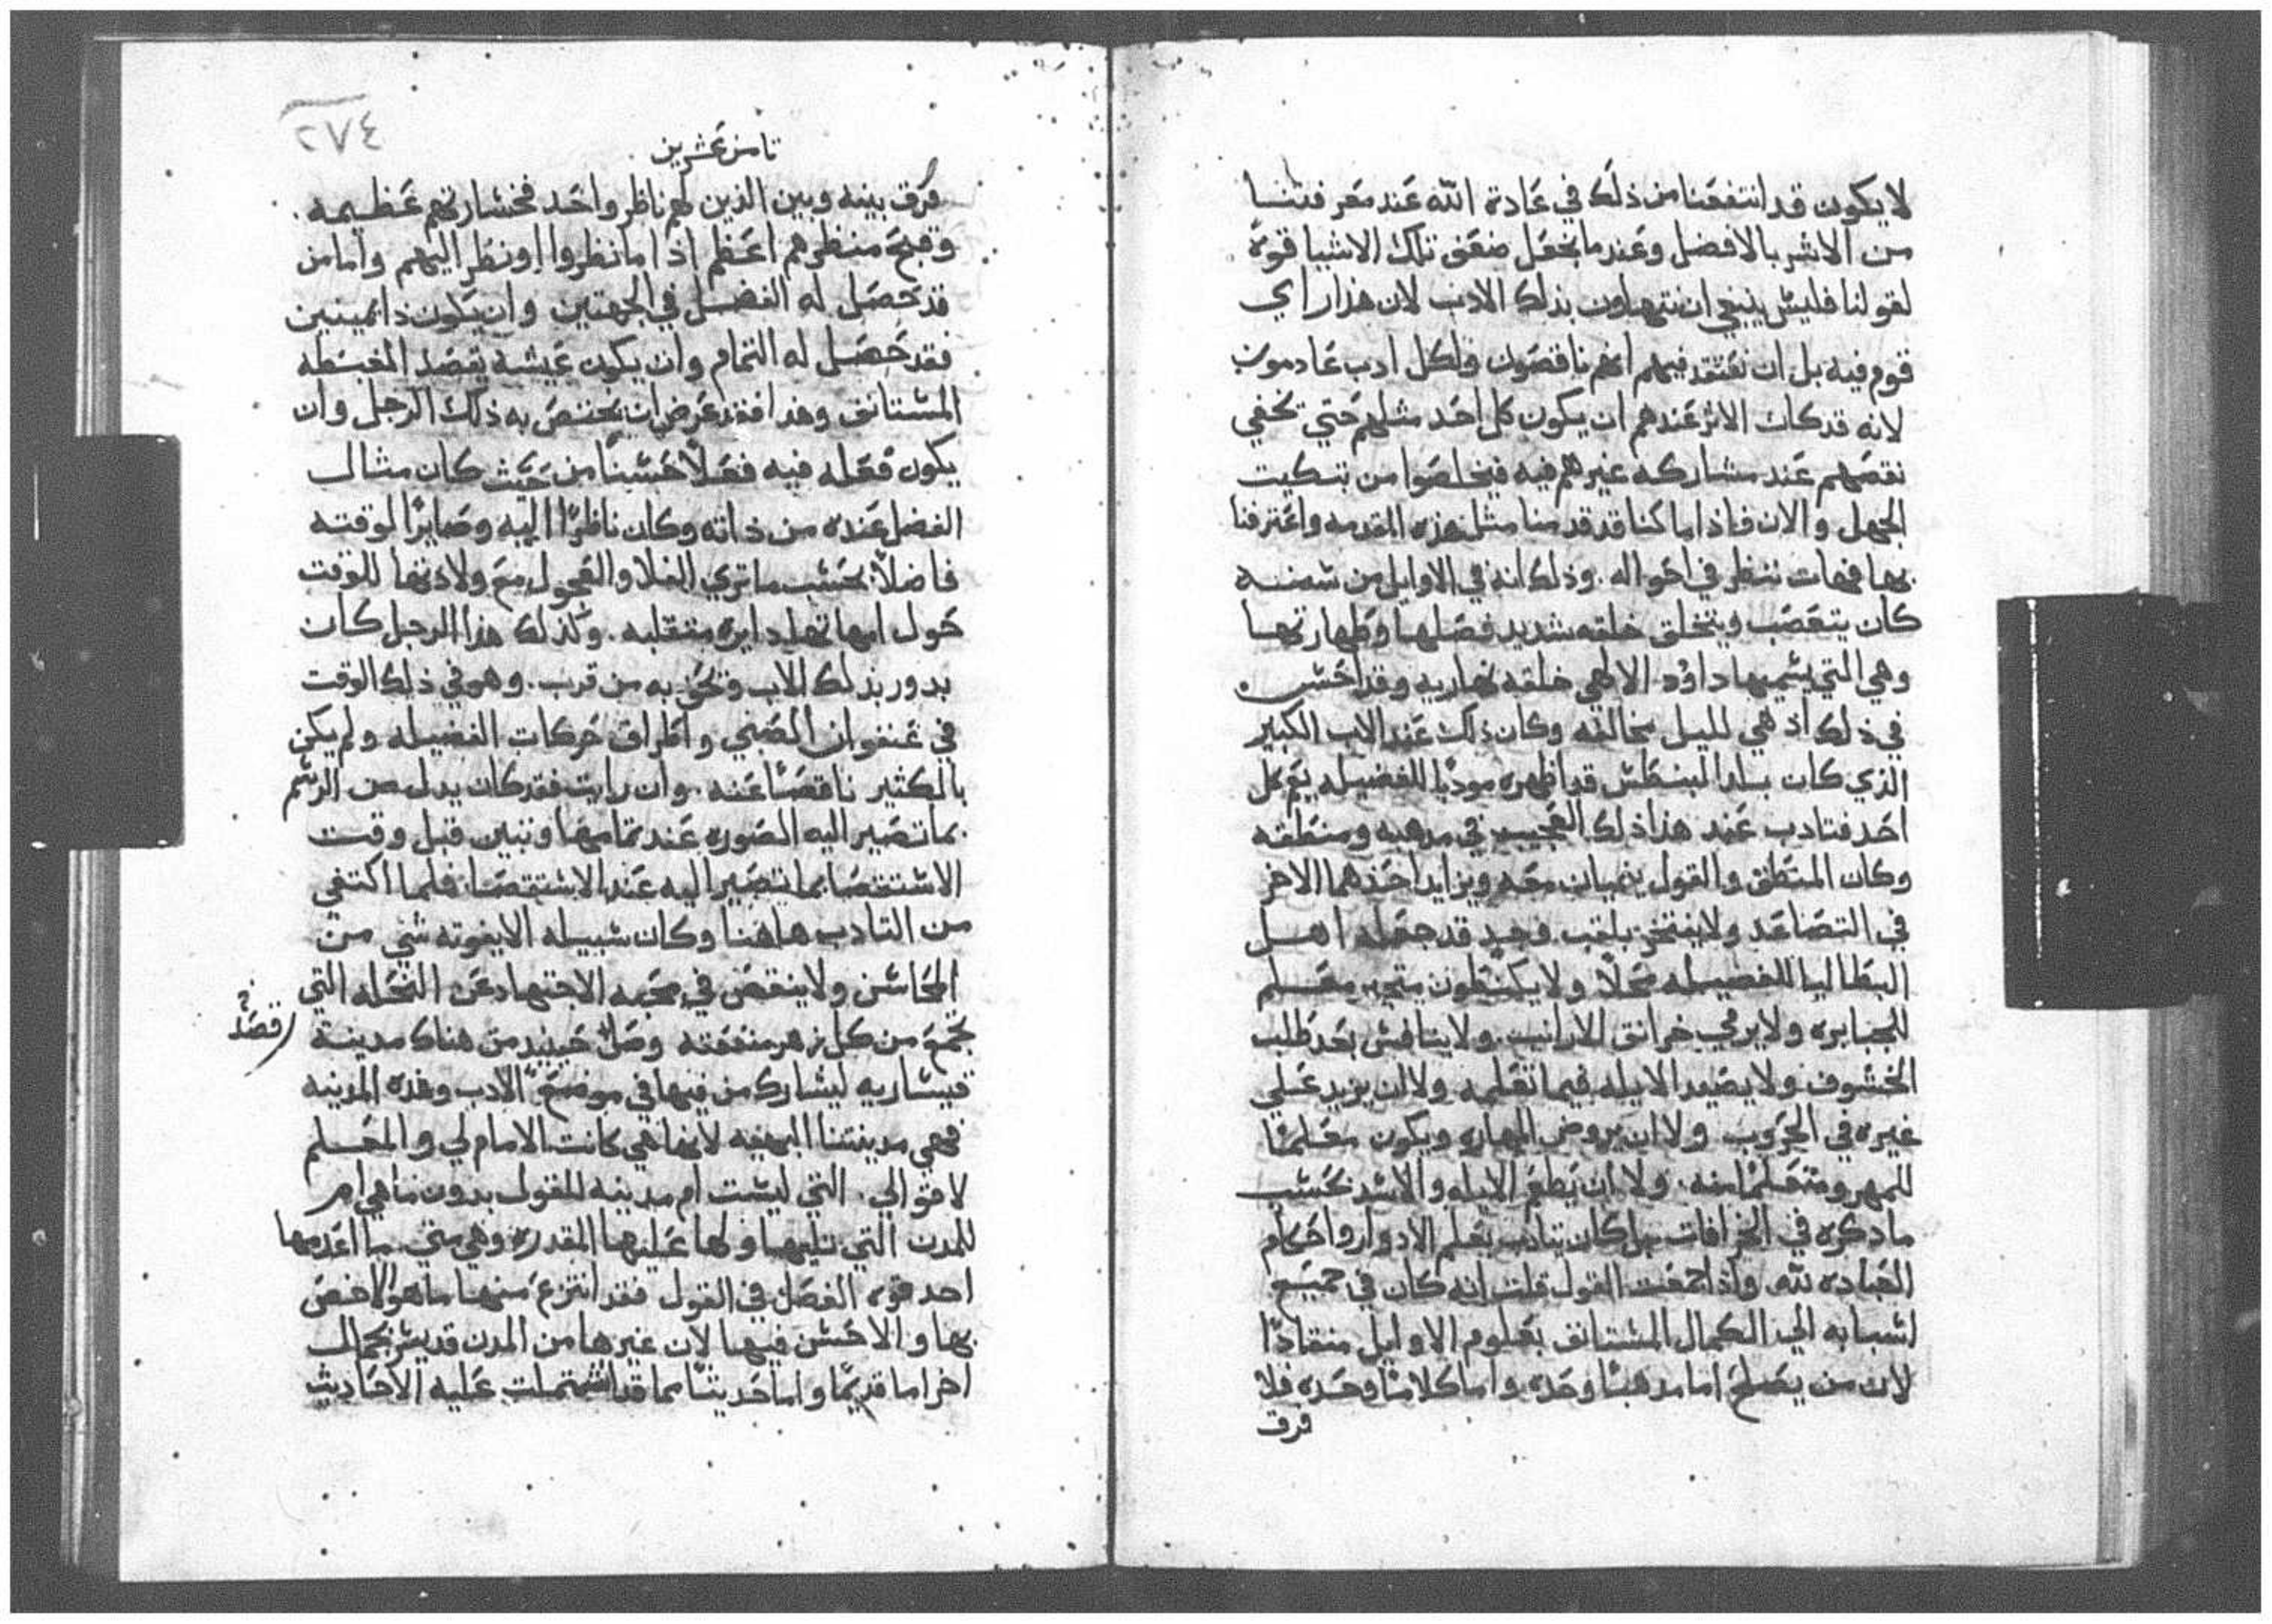 لا يكون قد انتفعنا من ذلك في عادة الله عند معرفتنا
من الاشر بالافضل وعندما نجعل ضعف تلك الاشيا قوة
لقولنا فليس ينبغي ان نتهاون بذلك الادب لان هذا راي
قوم فيه بل ان نعتقد فيهم انهم ناقصون ولكل ادب عادمون
لانه قد كان الاثر عندهم ان يكون كل احد مثلهم حتي تخفي
نقصهم عند مشاركه غيرهم فيه فيخلصوا من تبكيت
الجهل والان فاذا ما كنا قد قدمنا مثل هذه المقدمه واعترفنا
بها فهات ننظر في احواله. وذلك انه في الاوايل من سنه
كان يتعصب ويتخلق خلقه شديد فضلها وطهارتها
وهي التي يسميها داوُد الالهي خلقه نهاريه وقد احسن
في ذلك اذ هي لليل مخالفه وكان ذلك عند الاب الكبير
الذي كان بلد البنطس قد اظهره مودبا للفضيله يعم كل
احد فتادب عند هذا ذلك العجيب في مذهبه ومنطقه
وكان المنطق والقول ينميان معه ويزايد احدهما الاخر
في التصاعد ولا يفتخر بلقب وحيد قد جعله اهل
البطاليا للفضيله محلا ولا يكنطورن متجبر معلم
للجبابره ولا يرمي خرانق الارانب. ولا ينافس بعد طلب
الخشوف ولا يصيد الايله فيما تعلمه ولا ان يزيد علي
غيره في الحروب ولا ان يروض المهاره ويكون معلمًا
للمهر ومتعلمًا منه. ولا ان يطعم الايله والاسد بحسب
ما ذكره في الخرافات بل كان يتادب بعلم الادوار واحكام
العباده لله. واذا جمعت القول قلت انه كان في جميع
اسبابه الي الكمال المستانف بعلوم الاوايل منقادًا
لان من يصلح اما مذهبًا وحده واما كلامًا وحده فلا
فرق
٢٧٤
ثامن عشرين
فرق بينه وبين الذين لهم ناظر واحد فخسارتهم عظيمه.
وقبح منظرهم اعظم اذا ما نظروا او نظر اليهم واما من
قد حصل له الفضل في الجهتين وان يكون ذا يمينين
فقد حصل له التمام وان يكون عيشه بقصد الغبطه
المستانف وهذا فقد عرض ان يختص به ذلك الرجل وان
يكون فعله فيه فعلًا حسنًا من حيث كان مثال
الفضل عنده من ذاته وكان ناظرًا اليه وصايرًا لوقته
فاضلًا بحسب ما تري الفلا والعجول مع ولادتها للوقت
حول امهاتها دايره متقلبه. وكذلك هذا الرجل كان
يدور بذلك الاب ونحو به من قرب. وهو في ذلك الوقت
في عنفوان الصبي واطراف حركات الفضيله ولم يكن
بالكثير ناقصًا عنه. وان رايت فقد كان يدل من الرسم
بما تصير اليه الصوره عند تمامها وتبين قبل وقت
الاستقصا بما تصير اليه عند الاستقصا. فلما اكتفي
من التادب هاهنا وكان سبيله الا يفوته شي من
المحاسن ولا ينقص في محبه الاجتهاد عن النحله التي
تجمع من كل زهر منفعته وصل حينيد من هناك مدينة
قصد
قيساريه ليشارك من فيها في موضع الادب وهذه المدينه
فهي مدينتنا البهيه لانها هي كانت الامام لي والمعلم
لاقوالي. التي ليست ام مدينه للقول بدون ما هي ام
للمدن التي تليها ولها عليها المقدره وهي متي ما اعدمها
احد قوه الفضل في القول فقد انتزع منها ما هو الاخص
بها والاحسن فيها لان غيرها من المدن قد يسر بجمال
اخر اما قديمًا واما حديثًا مما قد اشتملت عليه الاحاديث